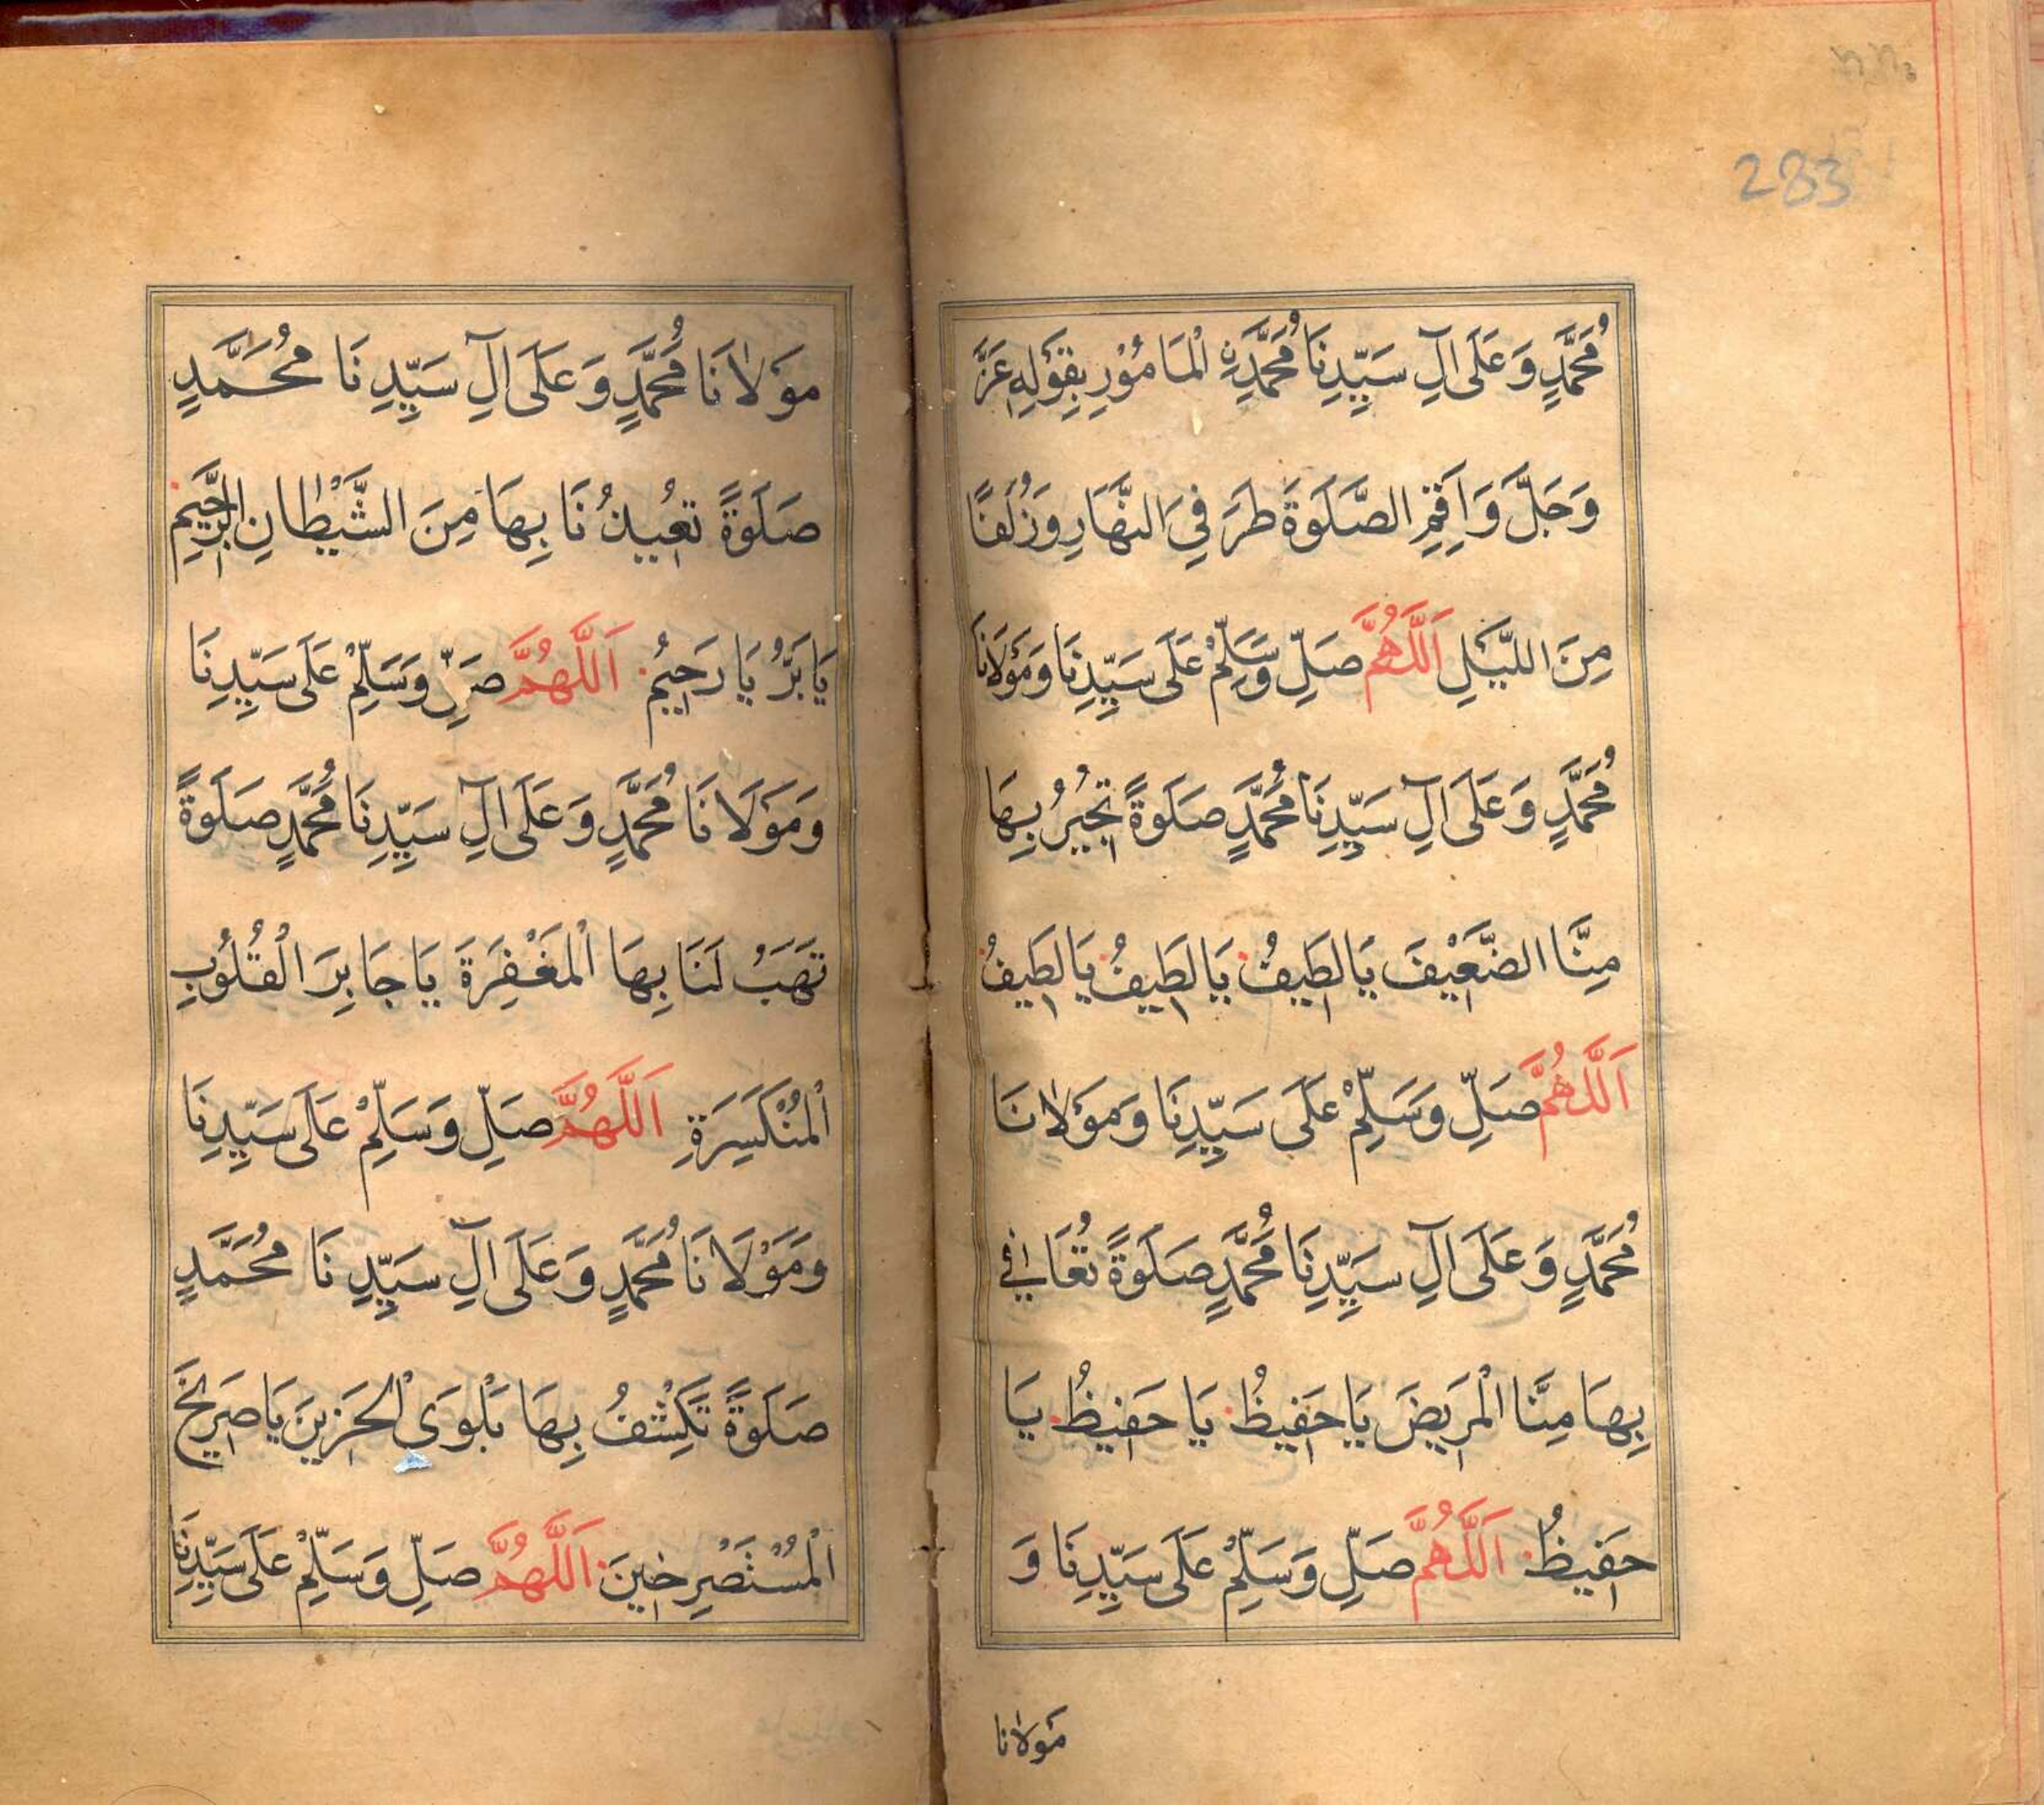 283
مُحَمَّدٍ وَعَلَى آلِ سَيِّدِنَا مُحَمَّدِنِ الْمَامُوْرِ بِقَوْلِهٖ عَزَّ
وَجَلَّ وَاَقِمِ الصَّلٰوةَ طَرَفَيِ النَّهَارِ وَزُلَفًا
مِنَ اللَّيْلِ اَللّٰهُمَّ صَلِّ وَسَلِّمْ عَلَى سَيِّدِنَا وَمَوْلَانَا
مُحَمَّدٍ وَعَلَى آلِ سَيِّدِنَا مُحَمَّدٍ صَلَوةً تُجِيْرُ بِهَا
مِنَّا الضَّعِيْفَ يَا لَطِيفُ يَا لَطِيفُ يَا لَطِيفُ
اَللّٰهُمَّ صَلِّ وَسَلِّمْ عَلَى سَيِّدِنَا وَمَوْلَانَا
مُحَمَّدٍ وَعَلَى آلِ سَيِّدِنَا مُحَمَّدٍ صَلَوةً تُعَافِي
بِهَا مِنَّا الْمَرِيضَ يَا حَفِيظُ يَا حَفِيظُ يَا
حَفِيظُ اَللّٰهُمَّ صَلِّ وَسَلِّمْ عَلَى سَيِّدِنَا وَ
مَولانا
مَوْلَانَا مُحَمَّدٍ وَعَلَى آلِ سَيِّدِنَا مُحَمَّدٍ
صَلَوةً تُعِيذُنَا بِهَا مِنَ الشَّيْطَانِ الرَّجِيمِ
يَا بَرُّ يَا رَحِيمُ اَللّٰهُمَّ صَلِّ وَسَلِّمْ عَلَى سَيِّدِنَا
وَمَوْلَانَا مُحَمَّدٍ وَعَلَى آلِ سَيِّدِنَا مُحَمَّدٍ صَلَوةً
تَهَبُ لَنَا بِهَا الْمَغْفِرَةَ يَا جَابِرَ الْقُلُوبِ
الْمُنْكَسِرَةِ اَللّٰهُمَّ صَلِّ وَسَلِّمْ عَلَى سَيِّدِنَا
وَمَوْلَانَا مُحَمَّدٍ وَعَلَى آلِ سَيِّدِنَا مُحَمَّدٍ
صَلَوةً تَكْشِفُ بِهَا بَلْوَى الْحَزِينَ يَا صَرِيخَ
الْمُسْتَصْرِخِينَ اَللّٰهُمَّ صَلِّ وَسَلِّمْ عَلَى سَيِّدِنَا